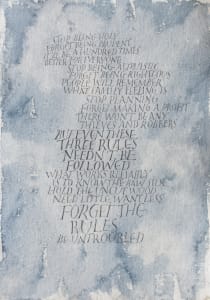 STOP BEING HOLY
FORGET BEING PRUDENT
IT'LL BE A HUNDRED TIMES
BETTER FOR EVERYONE
STOP BEING ALTRUISTIC
FORGET BEING RIGHTEOUS
PEOPLE WILL REMEMBER
WHAT FAMILY FEELING IS
STOP PLANNING
FORGET MAKING A PROFIT
THERE WON'T BE ANY
THIEVES AND ROBBERS
BUT EVEN THESE
THREE RULES
NEEDN'T BE
FOLLOWED
WHAT WORKS RELIABLY
IS TO KNOW THE RAW SILK
HOLD THE UNCUT WOOD
NEED LITTLE WANT LESS
FORGET THE
RULES
BE UNTROUBLED